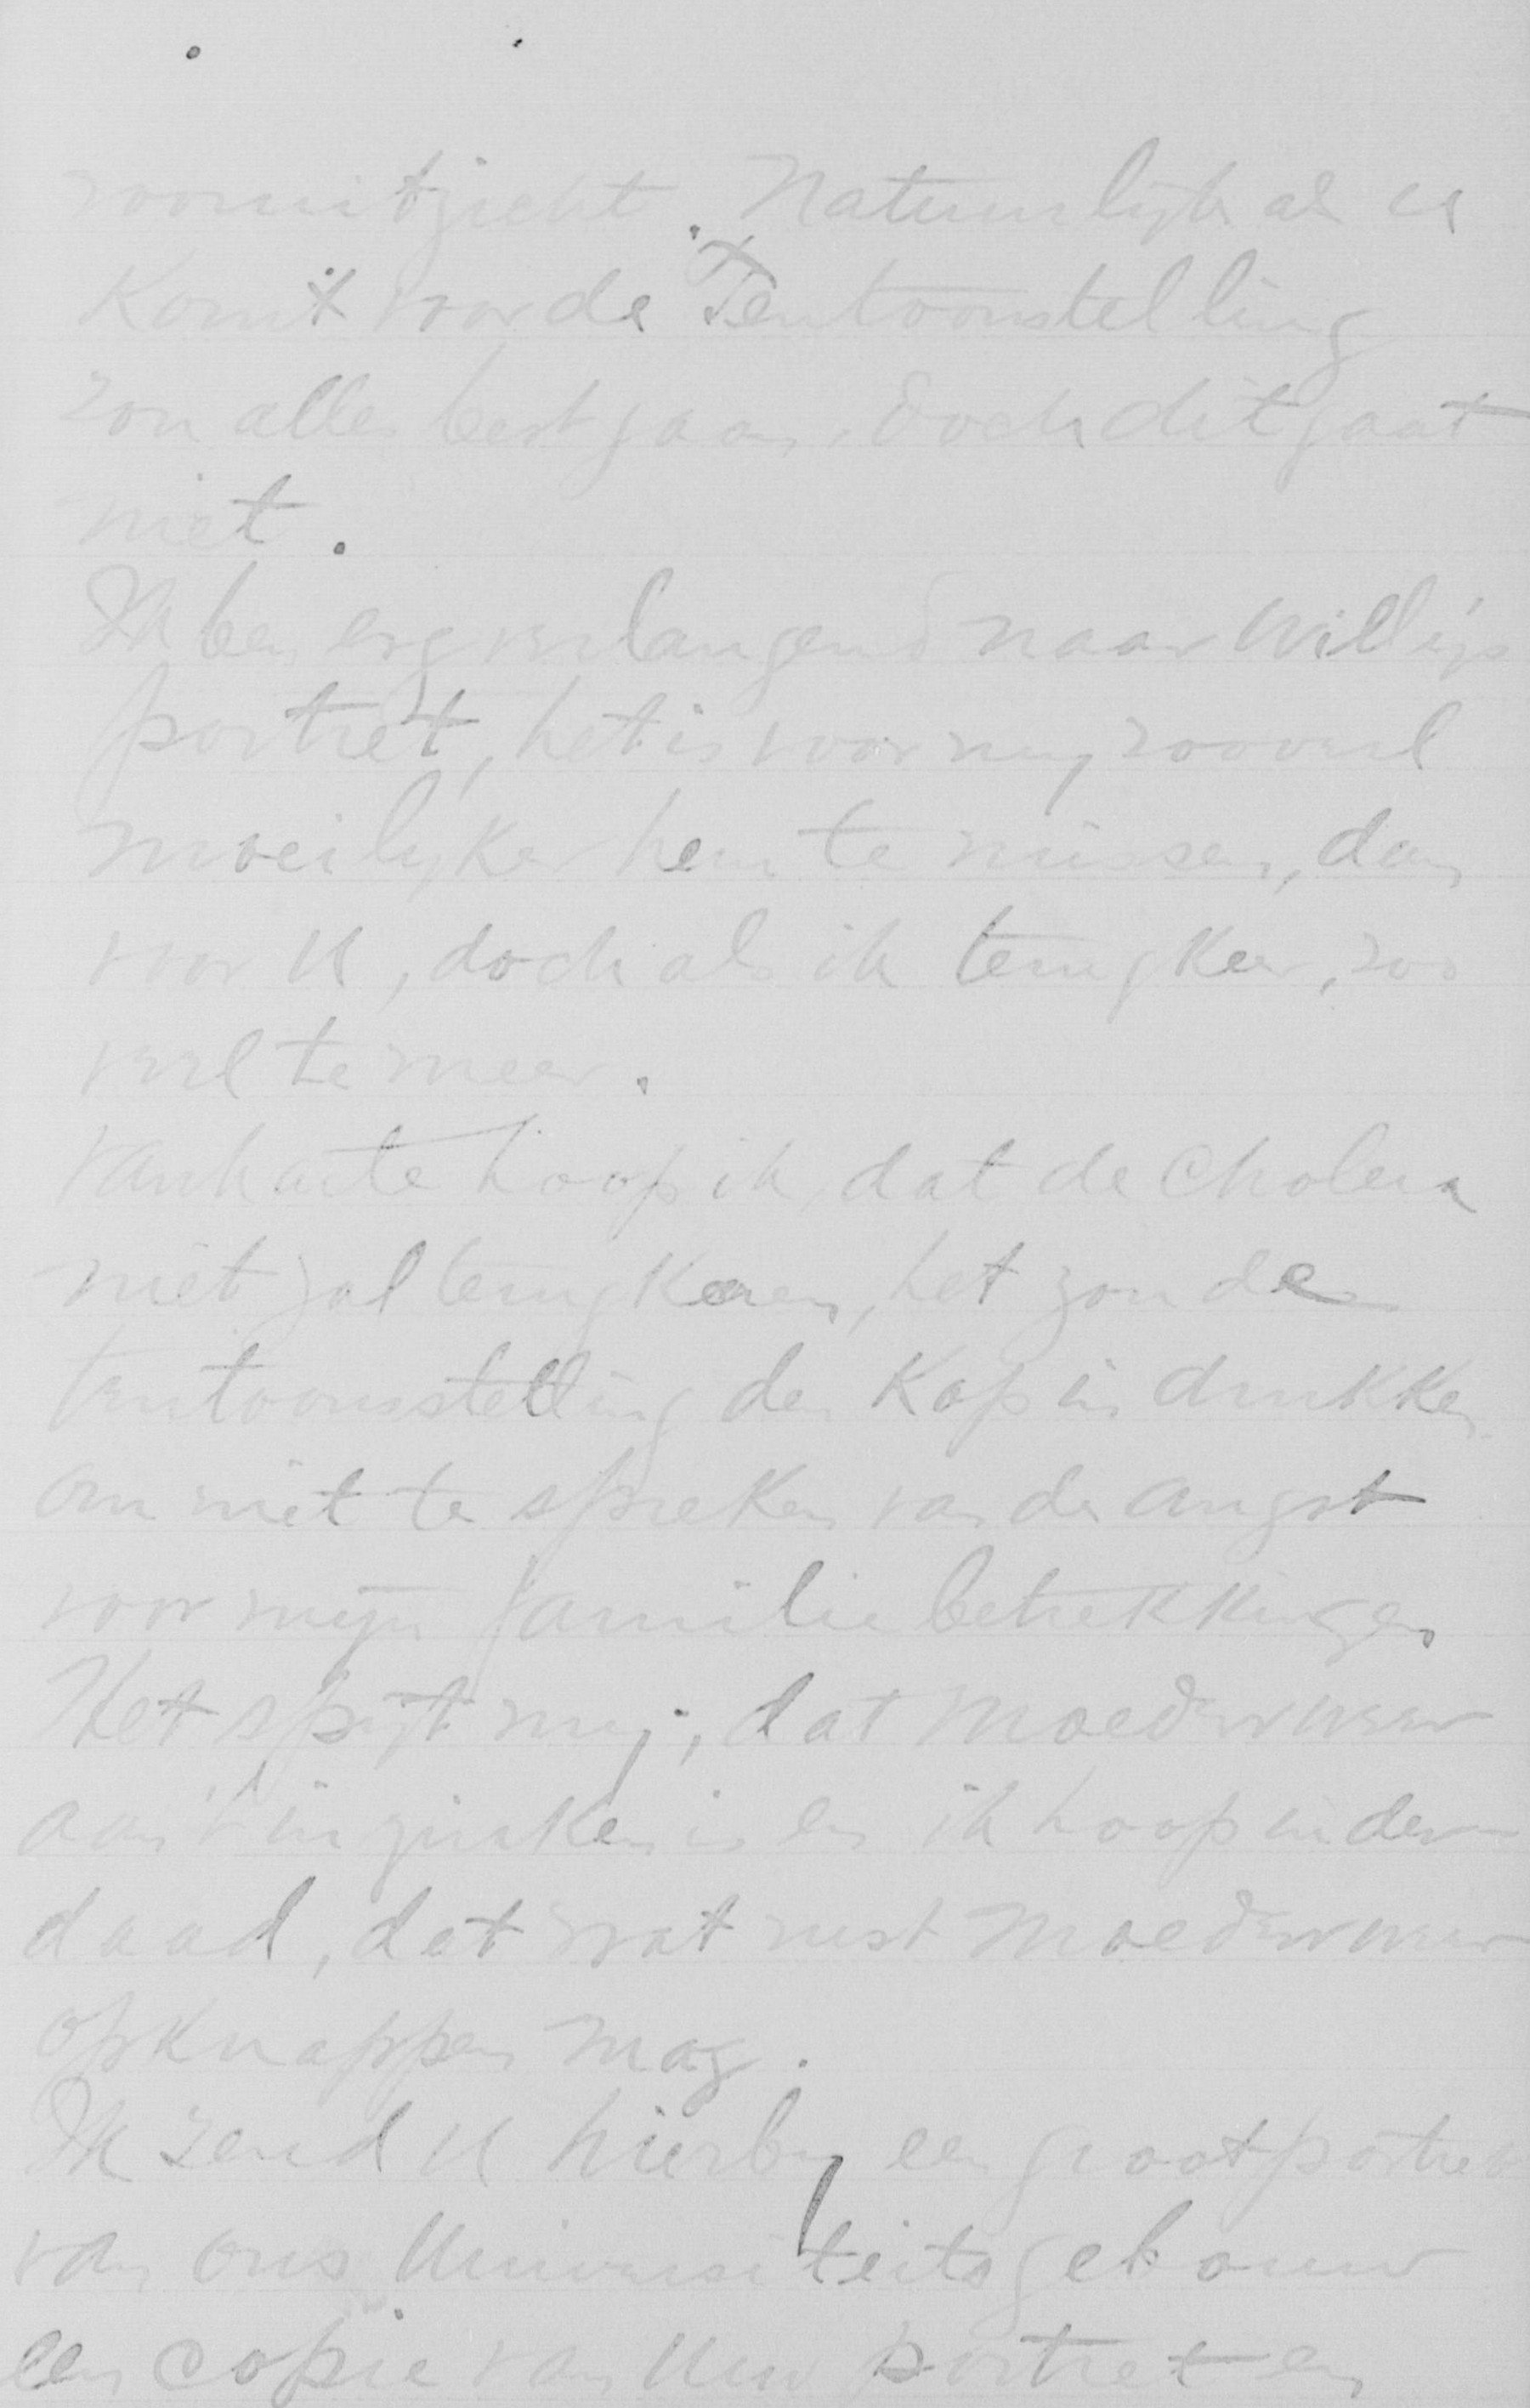 vooruitzicht. Natuurlijk als U
Komt voor de Tentoonstelling
zou alles best gaan, doch dit gaat
niet.
Ik ben erg verlangend naar Willijs
portret, het is voor mij zooveel
moeilijker hem te missen, dan
voor U, doch als ik terugkeer, zoo
veel te meer.
van harte hoop ik, dat de Cholera
niet zal terugkeeren, het zou de
tentoonstelling den Kop in drukken
om niet te spreken van de angst
voor mijn familiebetrekkingen
Het spijt mij, dat Moeder weer
aan 't inzinken is en ik hoop inder
daad, dat wat rust Moeder weer
opknappen mag.
Ik zend U hierbij een groot portret
van ons Universiteitsgebouw
een copie van Uw portret en